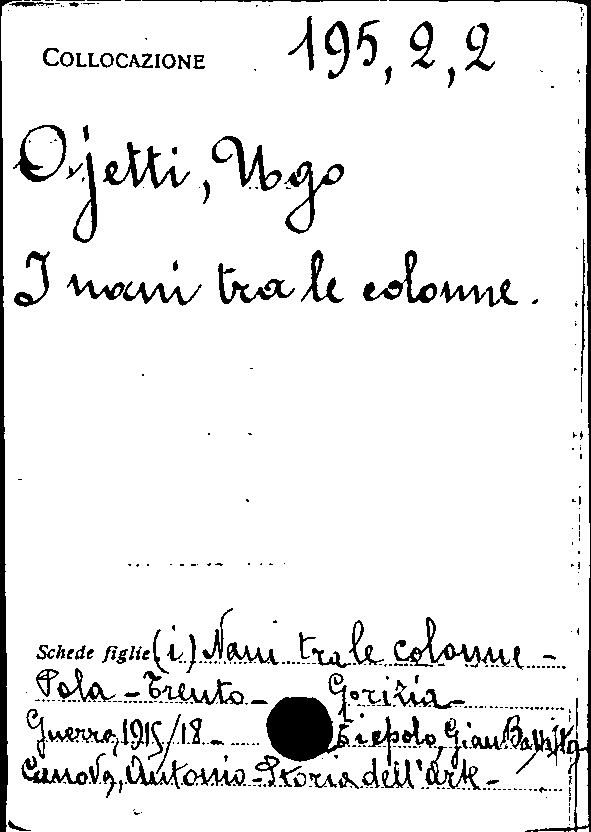 COLLOCAZIONE 195, 2, 2
Ojetti, Ugo
I nani tra le colonne.
Schede figlie (i) Nani tra le colonne -
Pola - Trento - Gorizia -
Guerra, 1915/18 - Tiepolo, Gian Battista
Canova, Antonio - Storia dell'arte -